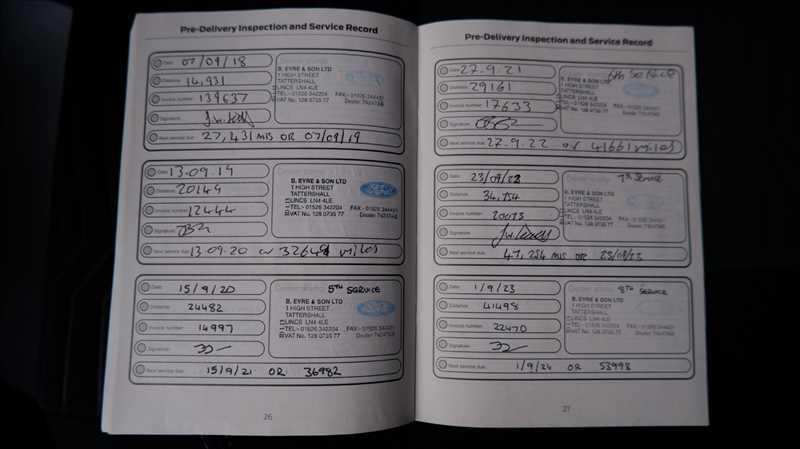 Pre-Delivery Inspection and Service Record
Date 07/09/18
Distance 14,931
Invoice number 139637
Signature
Next service due 27,431 MIS OR 07/09/19
B. EYRE & SON LTD
1 HIGH STREET
TATTERSHALL
LINCS LN4 4LE
TEL:- 01526 342204 FAX:- 01526 344401
VAT No. 128 0735 77 Dealer
Date 13.09.19
Distance 20149
Invoice number 12444
Signature
Next service due 13.09.20 or 32649 miles
B. EYRE & SON LTD
1 HIGH STREET
TATTERSHALL
LINCS LN4 4LE
TEL:- 01526 342204 FAX:- 01526 344401
VAT No. 128 0735 77 Dealer
Date 15/9/20
Distance 24482
Invoice number 14997
Signature
Next service due 15/9/21 OR 36982
5TH SERVICE
B. EYRE & SON LTD
1 HIGH STREET
TATTERSHALL
LINCS LN4 4LE
TEL:- 01526 342204 FAX:- 01526 344401
VAT No. 128 0735 77 Dealer
26
Pre-Delivery Inspection and Service Record
Date 27.9.21
Distance 29161
Invoice number 17633
Signature
Next service due 27.9.22 or 41661 miles
6th Service
B. EYRE & SON LTD
1 HIGH STREET
TATTERSHALL
LINCS LN4 4LE
TEL:- 01526 342204 FAX:- 01526 344401
VAT No. 128 0735 77 Dealer
Date 23/09/22
Distance 34,754
Invoice number 20073
Signature
Next service due 47,254 MIS OR 23/09/23
7TH SERVICE
B. EYRE & SON LTD
1 HIGH STREET
TATTERSHALL
LINCS LN4 4LE
TEL:- 01526 342204 FAX:- 01526 344401
VAT No. 128 0735 77 Dealer
Date 1/9/23
Distance 41498
Invoice number 22470
Signature
Next service due 1/9/24 OR 53998
8TH SERVICE
B. EYRE & SON LTD
1 HIGH STREET
TATTERSHALL
LINCS LN4 4LE
TEL:- 01526 342204 FAX:- 01526 344401
VAT No. 128 0735 77 Dealer
27